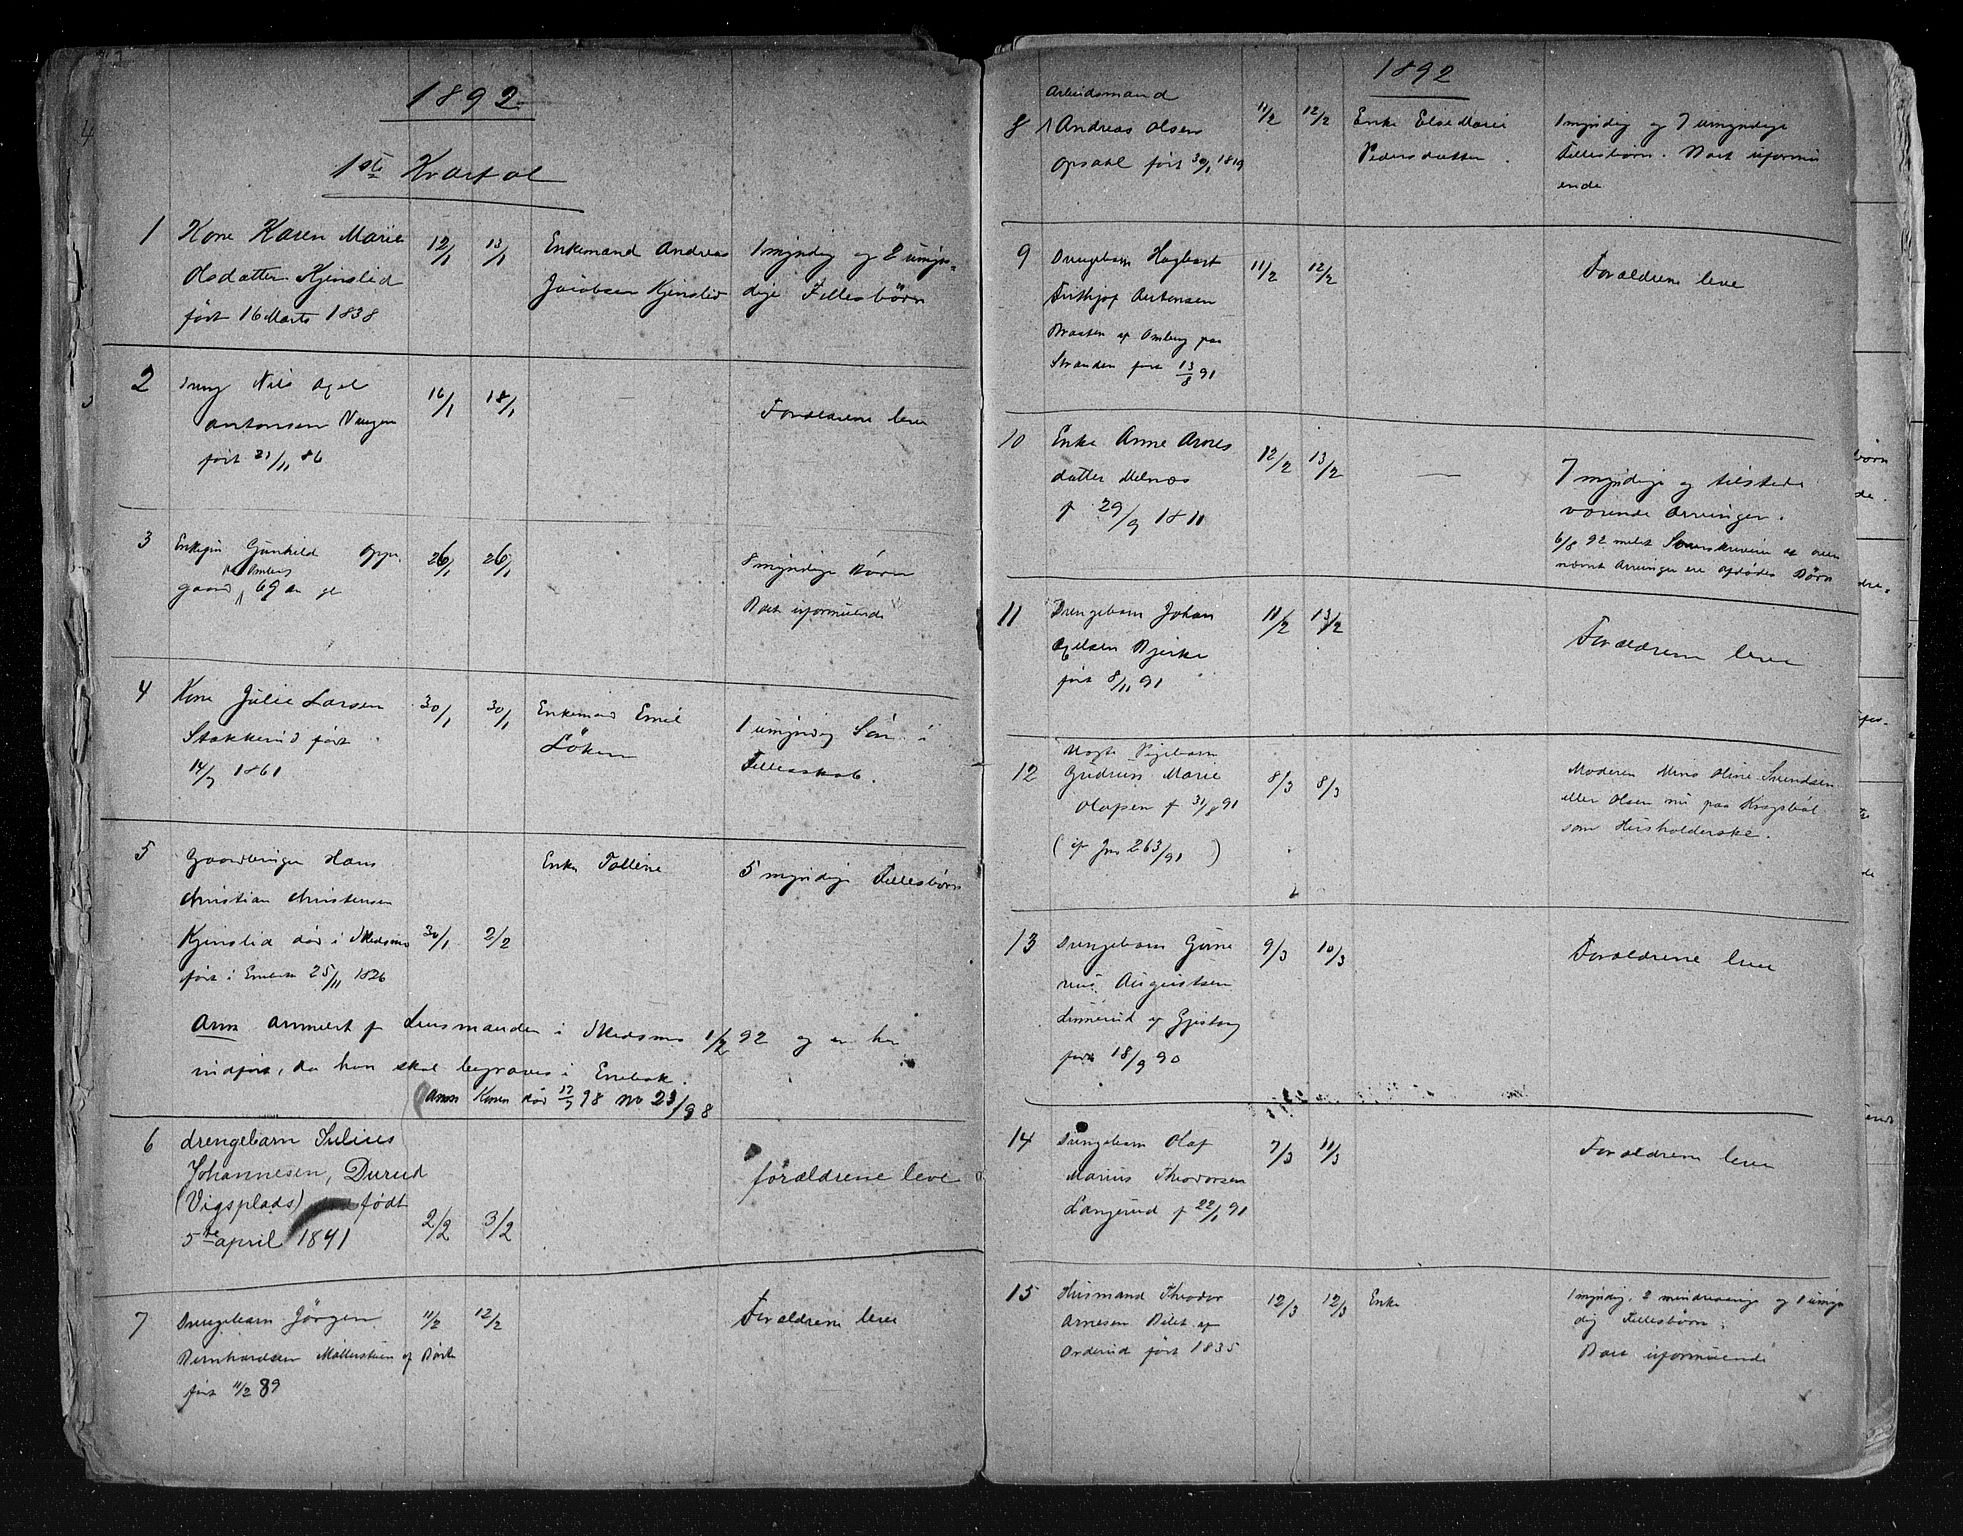 1892
1ste Kvartal
1 Kone Karen Marie 12/1 13/1 Enkemand Andreas 1 myndig og 2 umyn-
Olsdatter Kjenslid Jacobsen Kjenslid dige Fellesbørn
født 16 Marts 1838
2 Dreng Nils Axel 16/1 18/1
Antonsen Vangen Forældrene leve
født 21/11 86
3 Gunhild Opp- 26/1 26/1 8 myndige Børn
gaard 69 Aar gl Boet uformuende
4 Kone Julie Larsen 30/1 30/1 Enkemand Emil 1 umyndig Søn i
Stakkerud født Løken Fellesskab.
14/7 1861
5 Gaardbruger Hans Enke Polline 5 myndige Fellesbørn
Christian Christensen
Kjenslid død i Skedsmo 30/1 2/2
født i Enebak 25/11 1826
Anm anmeldt af Lensmanden i Skedsmo 1/2 92 og er her
indført, da han skal begraves i Enebak.
Anm Konen død 17/7 98 No 23/98
6 drengebarn Julius
Johannesen, Durud forældrene leve
(Vigsplads) født 2/2 3/2
5te april 1891
7 Drengebarn Jörgen 11/2 12/2 Forældrene leve
Bernhardsen Möllerstuen af Börte
født 11/2 89
1892
Arbeidsmand
8 Andreas Olsen 11/2 12/2 Enke Else Marie 1 myndig og 7 umyndige
Opsahl født 30/1 1819 Pedersdatter. Fellesbørn. Boet uformu
ende
9 Drengebarn Hagbart 11/2 12/2 Forældrene leve
Frithjof Antonsen
Braaten af Omberg paa
Stranden født 13/8 91
10 Enke Anne Arnes 12/2 13/2 — 7 myndige og tilstede
datter Melnæs værende Arvinger.
f 29/9 1811 6/8 92 meldt Sorenskriveren at oven
nævnt Arvinger ere afdødes Børn
11 Drengebarn Johan 11/2 13/2 Forældrene leve
Axelsen Bjerke
født 8/11 91
12 Uægte Pigebarn
Gudrun Marie 8/3 8/3 Moderen Mina Oline Svendsen
Olafsen f 31/8 91 eller Olsen nu paa Kragsbøl
(cfr Jno 263/91) som Husholderske.
13 Drengebarn Gune 9/3 10/3 Forældrene leve
rius Augustsen
Linnerud af Gjestang
født 18/9 90
14 Drengebarn Olaf 7/3 11/3 Forældrene leve
Marius Theodorsen
Langerud f 22/1 91
15 Husmand Theodor 12/3 12/3 Enke 1 myndig, 2 mindreaarige og 1 umyn
Arnesen Eilet af dig Fellesbørn.
Orderud født 1835 Boet uformuende